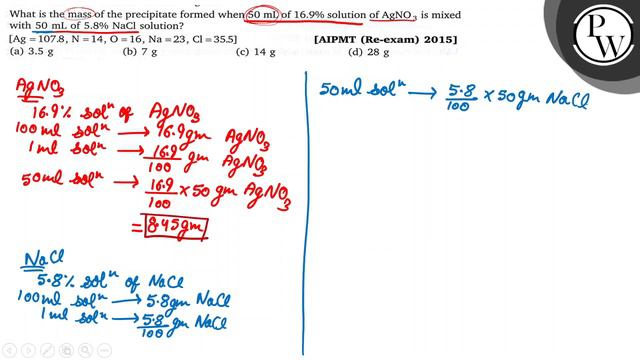 What is the mass of the precipitate formed when 50 mL of 16.9% solution of AgNO3 is mixed
with 50 mL of 5.8% NaCl solution?
[Ag = 107.8, N = 14, O = 16, Na = 23, Cl = 35.5] [AIPMT (Re-exam) 2015]
(a) 3.5 g (b) 7 g (c) 14 g (d) 28 g
PW
AgNO3
16.9% solⁿ of AgNO3
100ml solⁿ → 16.9gm AgNO3
1ml solⁿ → 16.9/100 gm AgNO3
50ml solⁿ → 16.9/100 × 50 gm AgNO3
= 8.45gm
NaCl
5.8% solⁿ of NaCl
100ml solⁿ → 5.8gm NaCl
1ml solⁿ → 5.8/100 gm NaCl
50ml solⁿ → 5.8/100 × 50gm NaCl